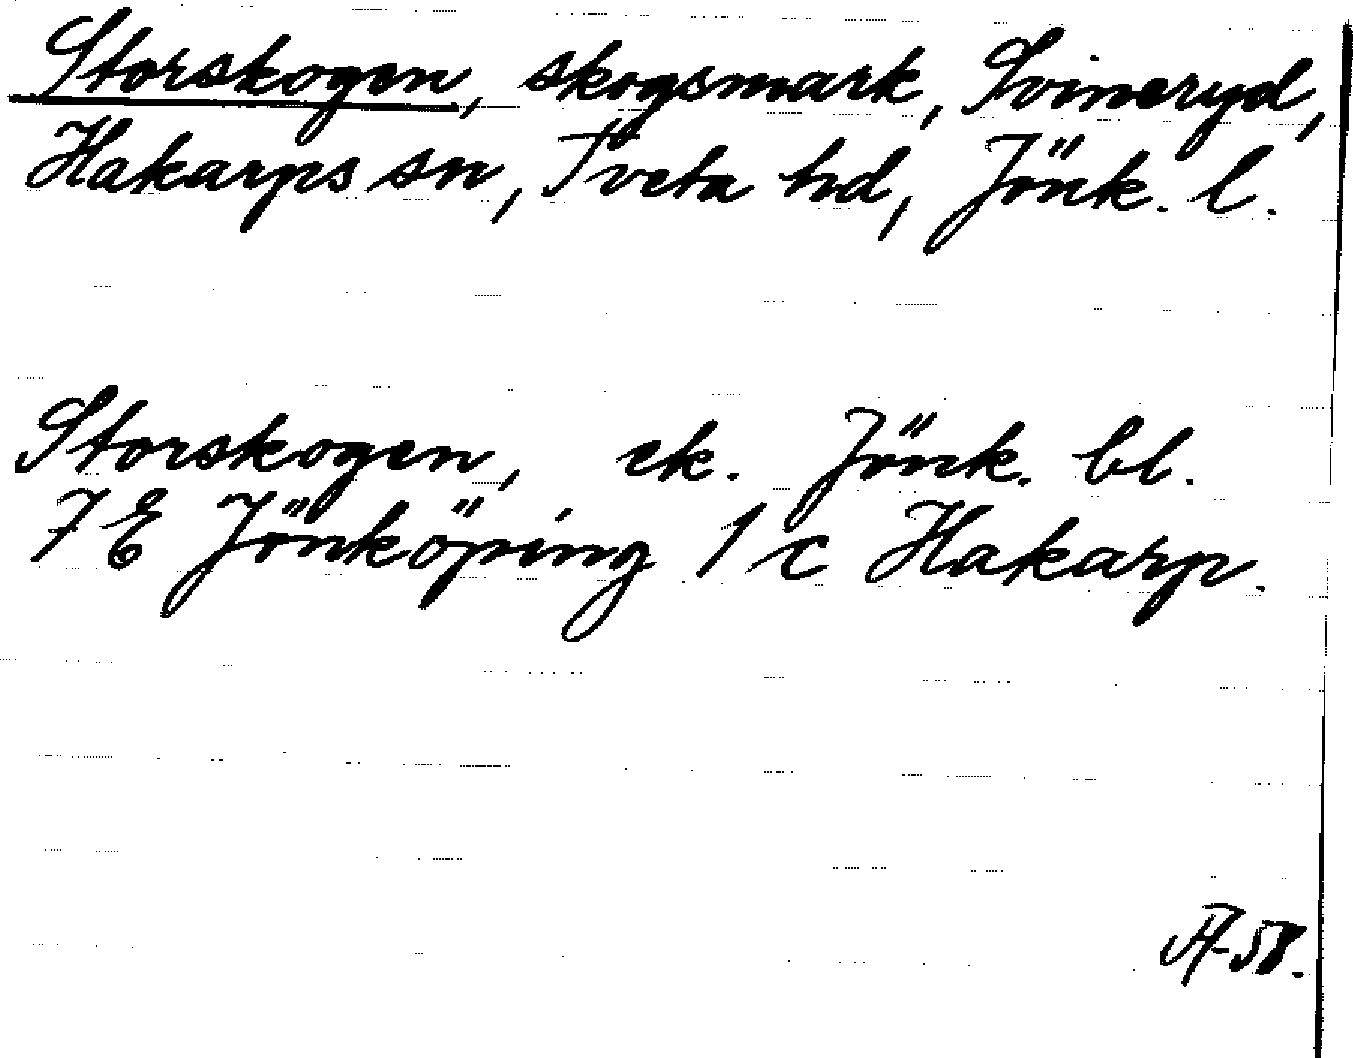 Storskogen, skogsmark, Svineryd,
Hakarps sn, Tveta hd, Jönk. l.
Storskogen, ek. Jönk. bl.
7 E Jönköping 1 c Hakarp.